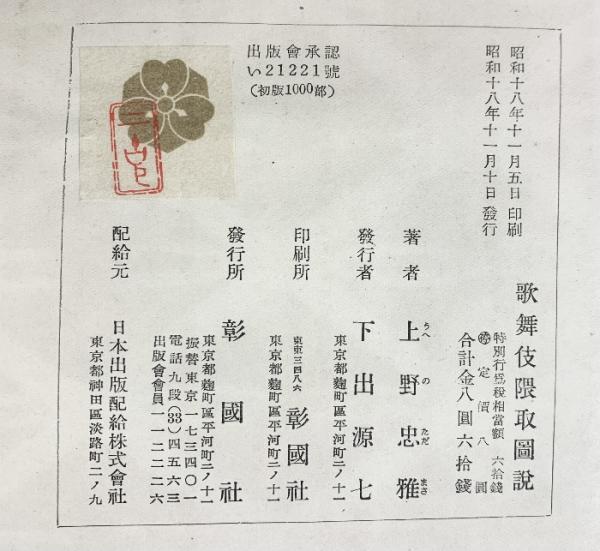 昭和十八年十一月五日 印刷
昭和十八年十一月十日 發行
出版會承認
い21221號
(初版1000部)
歌舞伎隈取圖說
特別行爲稅相當額 六拾錢
定價八圓
合計金八圓六拾錢
著者 上野忠雅
うへ の ただ まさ
發行者 下出源七
東京都麴町區平河町二ノ十一
印刷所 東東三四八六 彰國社
東京都麴町區平河町二ノ十一
發行所 彰國社
東京都麴町區平河町二ノ十一
振替東京一七三四〇一
電話九段(33)四五六三
出版會會員一一二二二六
配給元 日本出版配給株式會社
東京都神田區淡路町二ノ九